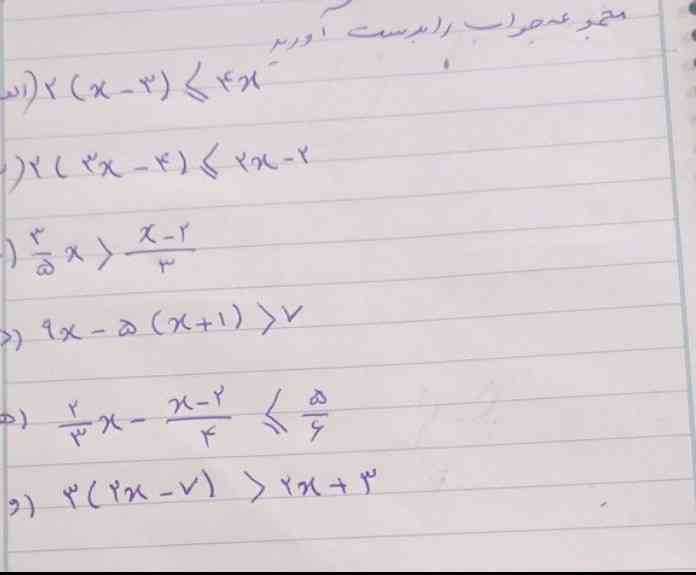 مجموعه جواب را بدست آورید
الف) ۲(x-۳) ≤ ۴x
) ۲(۳x-۴) ≤ ۲x-۲
) ۳/۵ x > x-۲/۳
د) ۹x-۵(x+۱) > ۷
ه) ۲/۳ x - x-۲/۴ ≤ ۵/۶
و) ۳(۲x-۷) > ۲x+۳